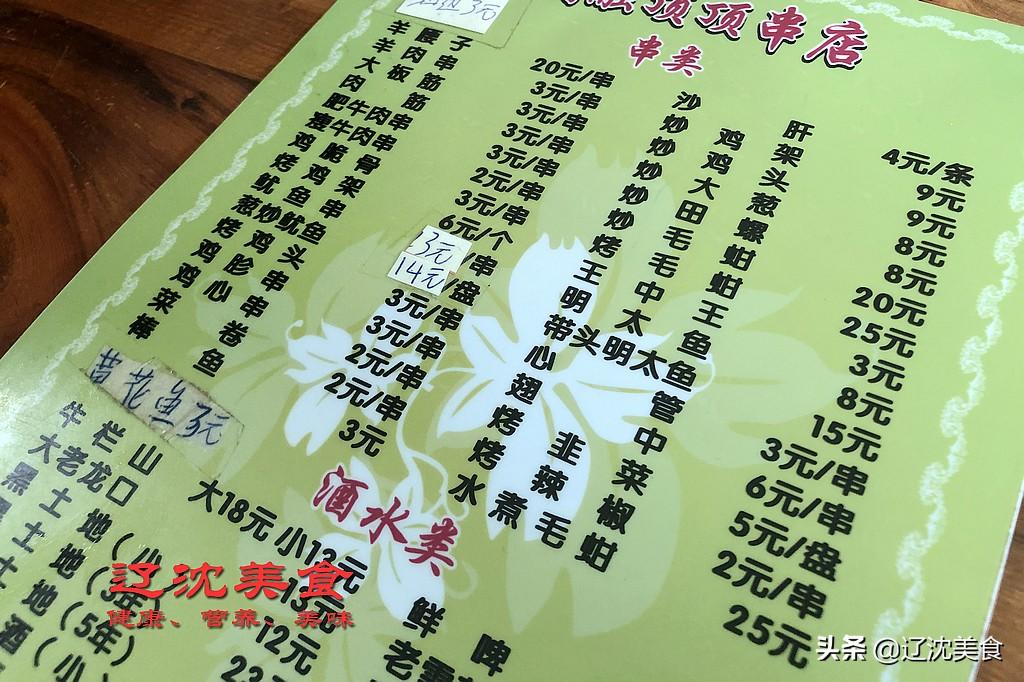 3元
顶顶串店
串类
羊腰子 20元/串
羊肉串 3元/串
大板筋 3元/串
肉筋 3元/串
肥牛肉串 3元/串
瘦牛肉串 2元/串
鸡脆骨 3元/串
烤鸡架 6元/个
鱿鱼串 3元/串
葱炒鱿鱼 14元/盘
烤鸡头 3元/串
鸡胗串 3元/串
鸡心串 2元/串
菜卷 2元/串
棒鱼 3元
沙肝 4元/条
炒鸡架 9元
炒鸡头 9元
炒大葱 8元
炒田螺 8元
炒毛蚶 20元
烤毛蚶 25元
王中王 3元
明太鱼 8元
带头明太鱼 15元
心管 3元/串
翅中 6元/串
烤韭菜 5元/盘
烤辣椒 2元/串
水煮毛蚶 25元
花鱼3元
酒水类
牛栏山 大18元 小13元
大老龙口 13元
黑土地(小) 12元
黑土地(3年)
土地(5年)
酒(小
鲜啤
老雪
辽沈美食
健康、营养、美味
头条 @辽沈美食